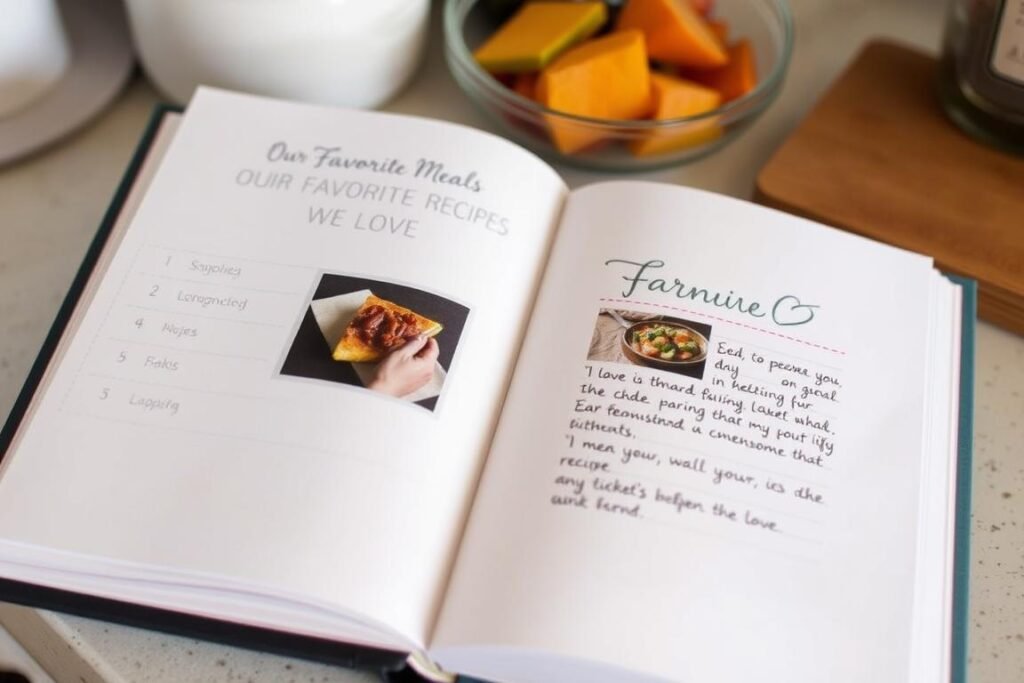 Our Favorite Meals
OUIR FAVORITE RECIPES
WE LOVE
1
2
4
5 Fales
3 Lapping
Farmuire
Eed, to peeere you,
day on gueal
in helling fur
"I love is thard fulling, laket whad.
the chde paring that my pout lify
Ear femustnrd a cmensome that
futheats,
"I men your, wall your, ics dhe
recipe
any ticket's befpen the love
aunk fernd.